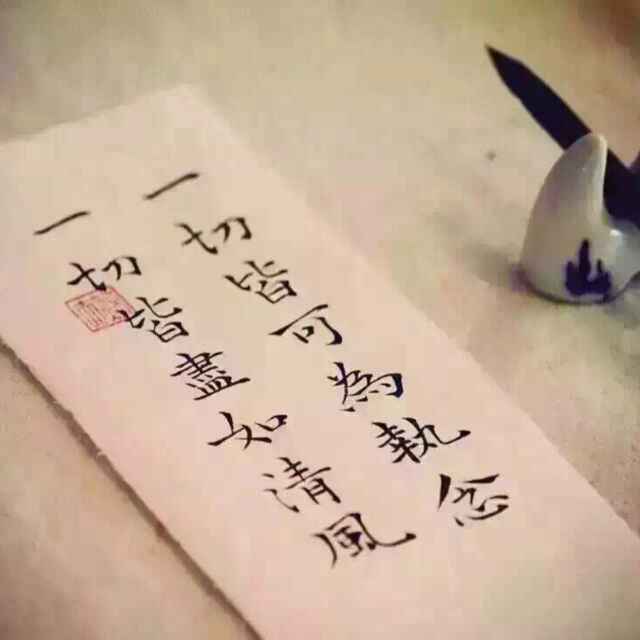 一切皆可為執念
一切皆盡如清風
山